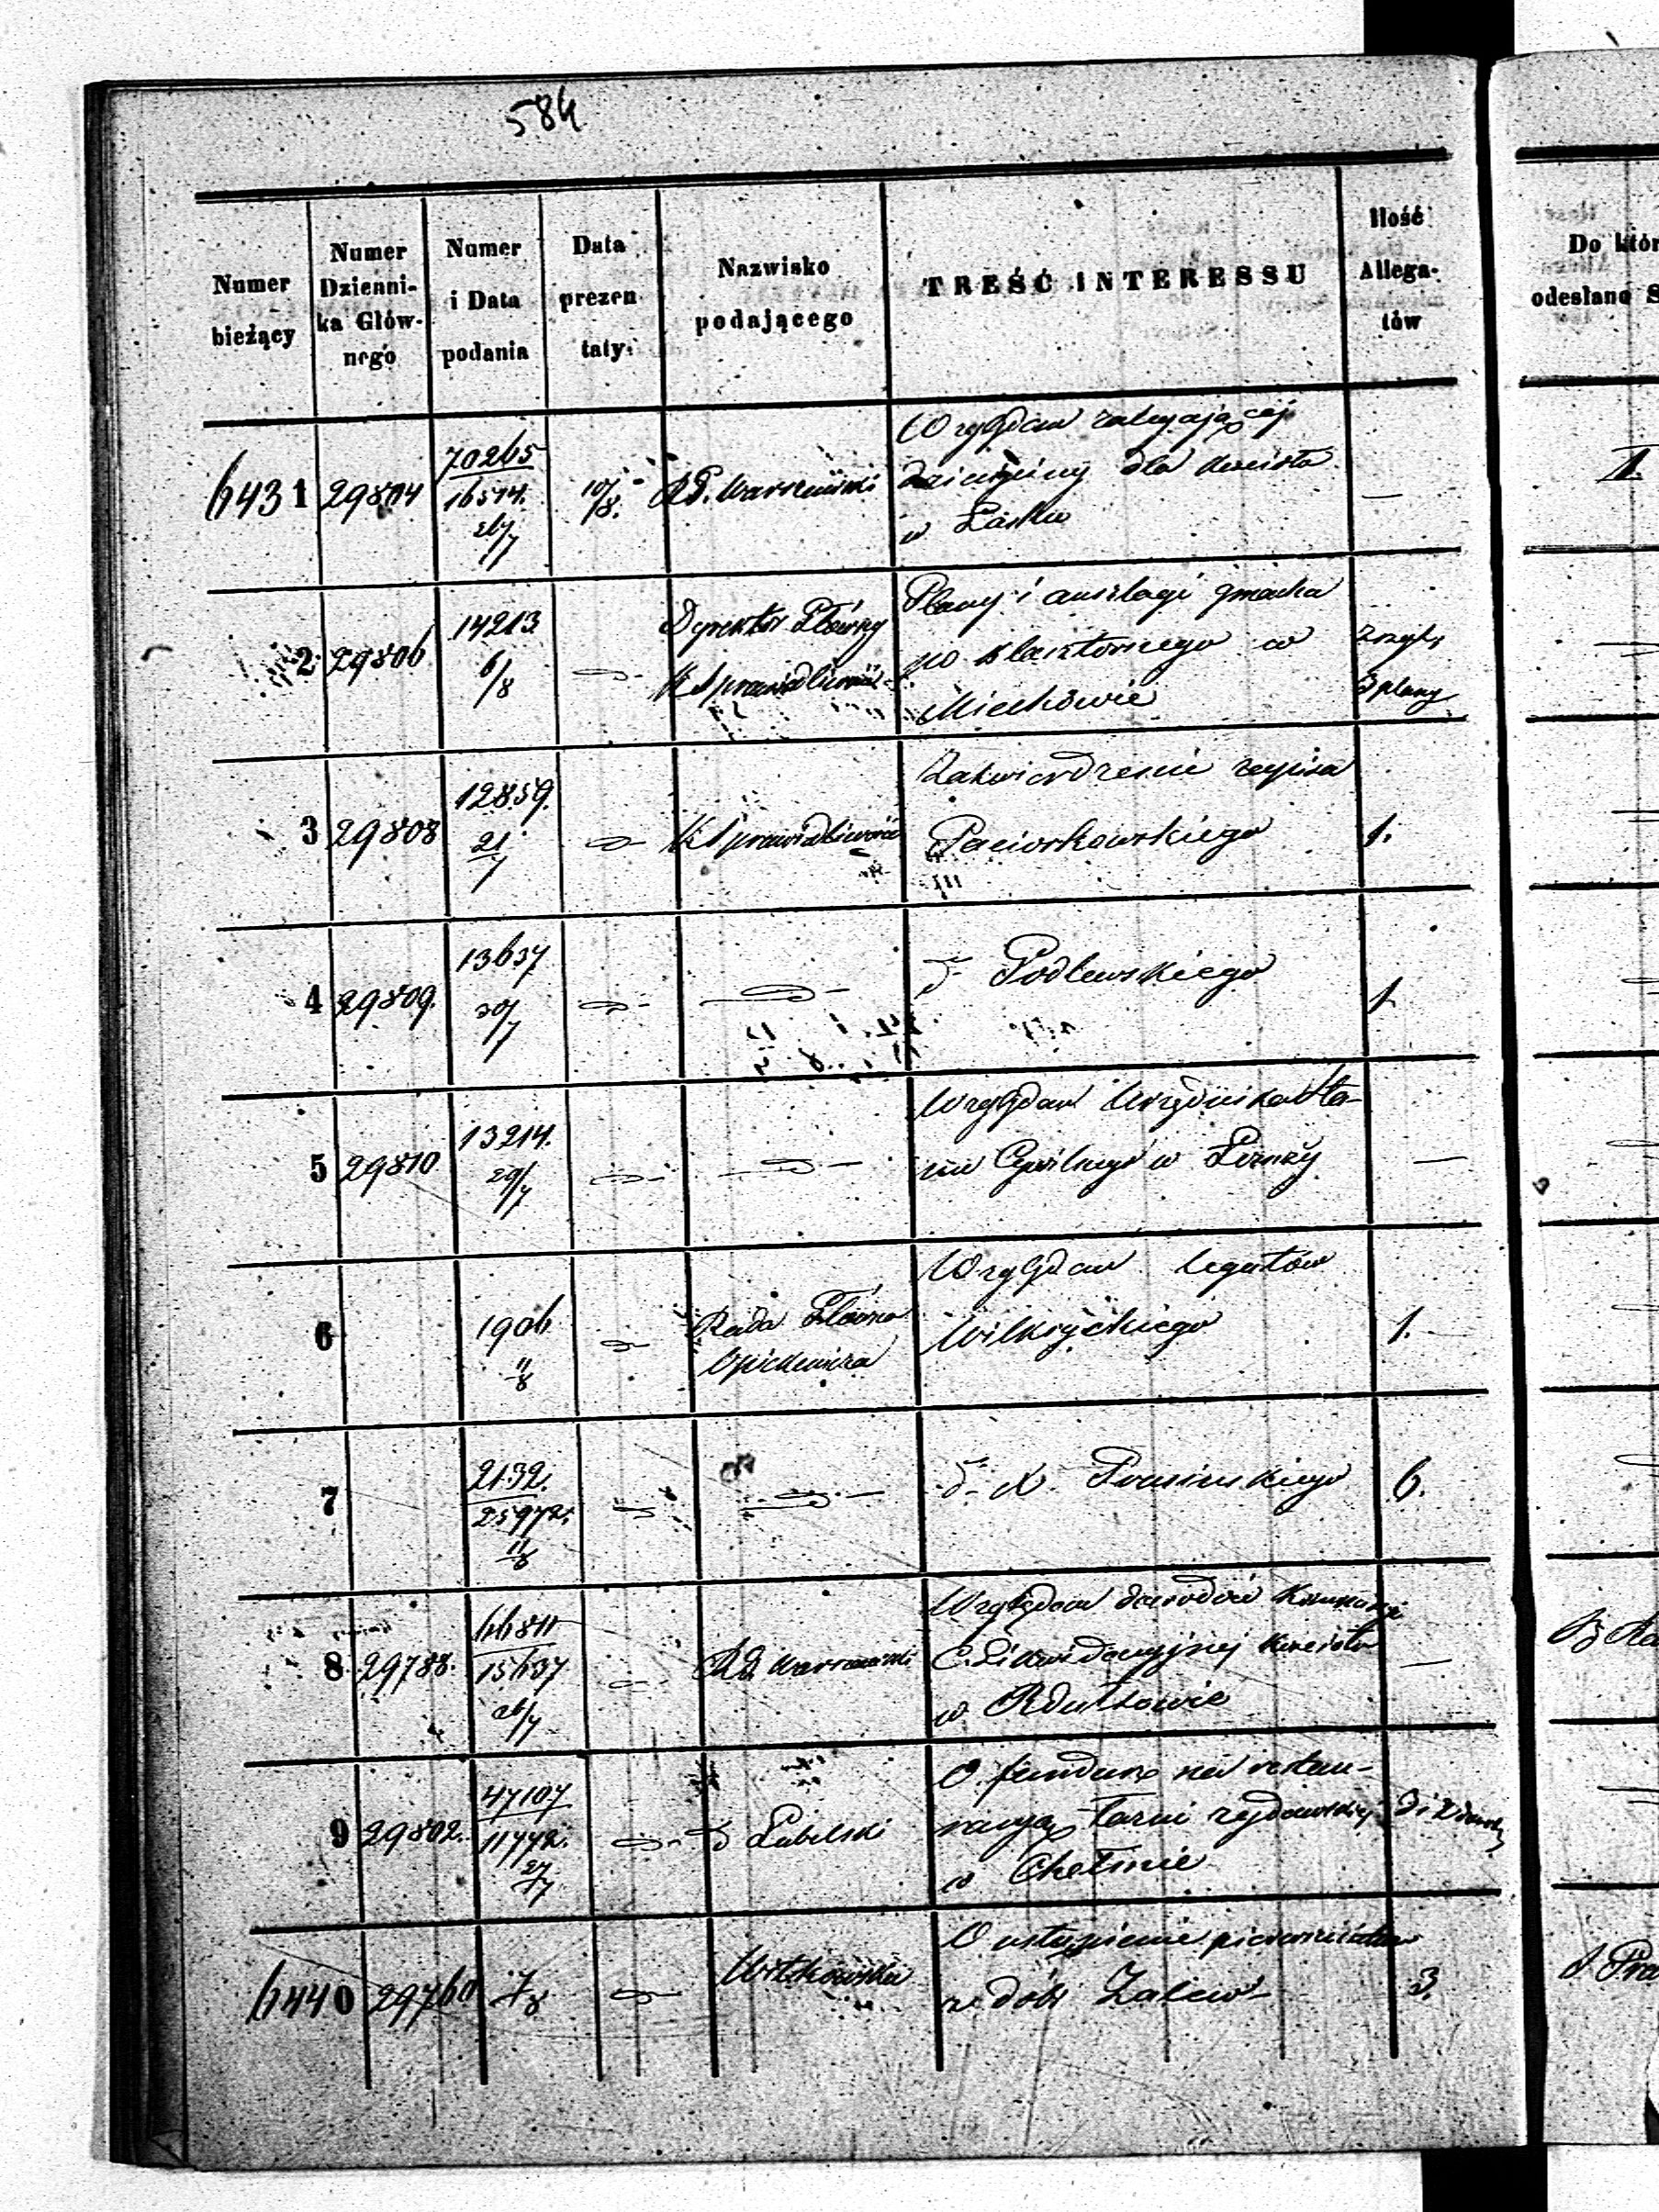 584
Numer bieżący
Numer Dzienni-ka Głów-nego
Numer i Data podania
Data prezen taty
Nazwisko podającego
TREŚĆ INTERESSU
Ilość Allega-tów
Do któr
odesłano S
6431 29804 70265 16514. 26/7 10/8. R.G. Warszawski
Względem zalegającej
dziesięciny dla kościoła
w Łasku —
2 29806 14213 6/8 Dyrektor Główny
K. Sprawiedliwości
Plany i anszlagi gmachu
po klasztornego w
Miechowie
3 plany
3 29808 12859. 21/7 K. Sprawiedliwości
Zatwierdzenie zapisu
Paciorkowskiego 1.
4 29809. 13637 30/7
d- Podlewskiego 1
5 29810 13214. 29/7
Względem Urzędnika Sta-
nu Cywilnego w —
6 1906 11/8 Rada Główna
Opiekuńcza
Względem legatów
1.
7 2132. 25972. 11/8
d- X. 6.
8 29788. 66811 15637 26/7 R.G. Warszawski
Względem dowodów Kommissyi
C. Likwidacyjnej kościoła
w Rdutowie —
9 29802. 47107 11772. 27/7 d Lubelski
O fundusz na restau-
racyą łaźni żydowskiej
w Chełmie
6440 29760 7/8 Witkowska
O ustąpienie pierwszeństwa
z dóbr Zalew 3.